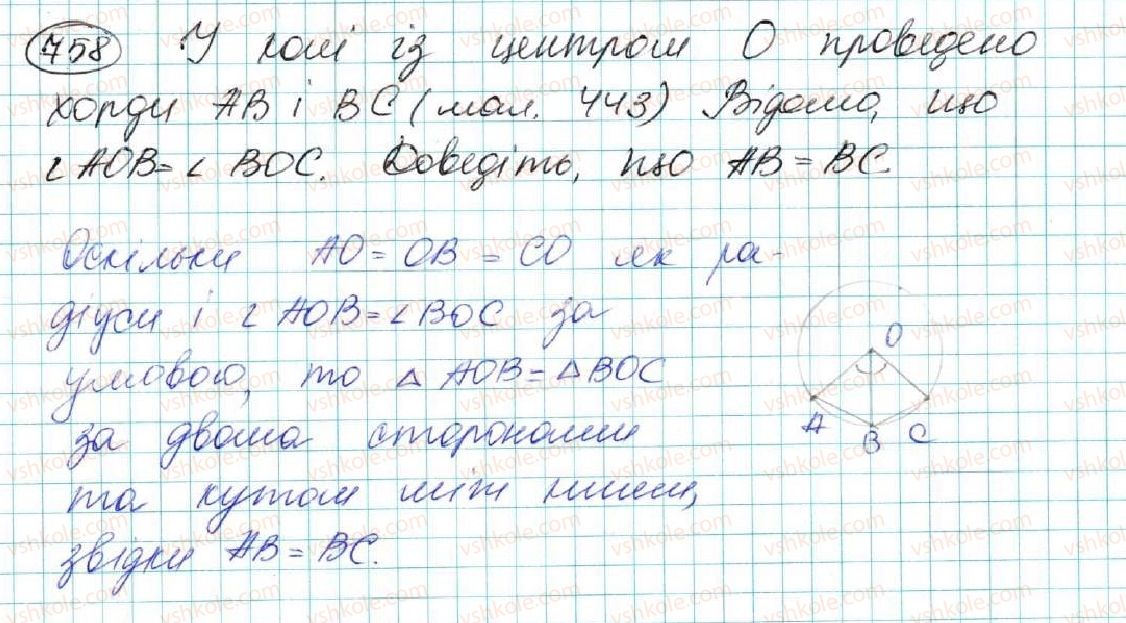 758 У колі із центром O проведено
хорди AB і BC (мал. 443) Відомо, що
∠ AOB = ∠ BOC. Доведіть, що AB = BC.
Оскільки AO = OB = CO як ра-
діуси і ∠ AOB = ∠ BOC за
умовою, то △ AOB = △ BOC
за двома сторонами
та кутом між ними,
звідки AB = BC.
O
A B C